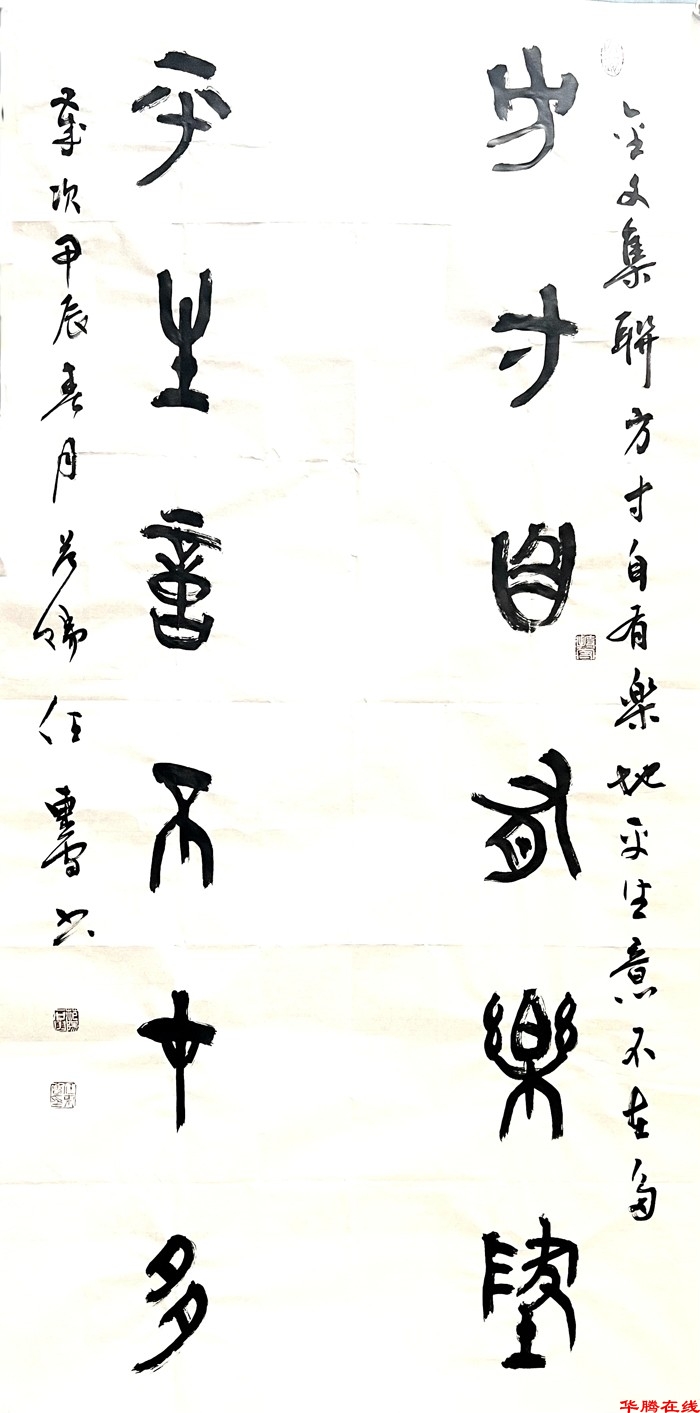 金文集聯方寸自有樂地平生意不在多
方寸自有樂地
平生意不在多
歲次甲辰春月
任
书
华腾在线